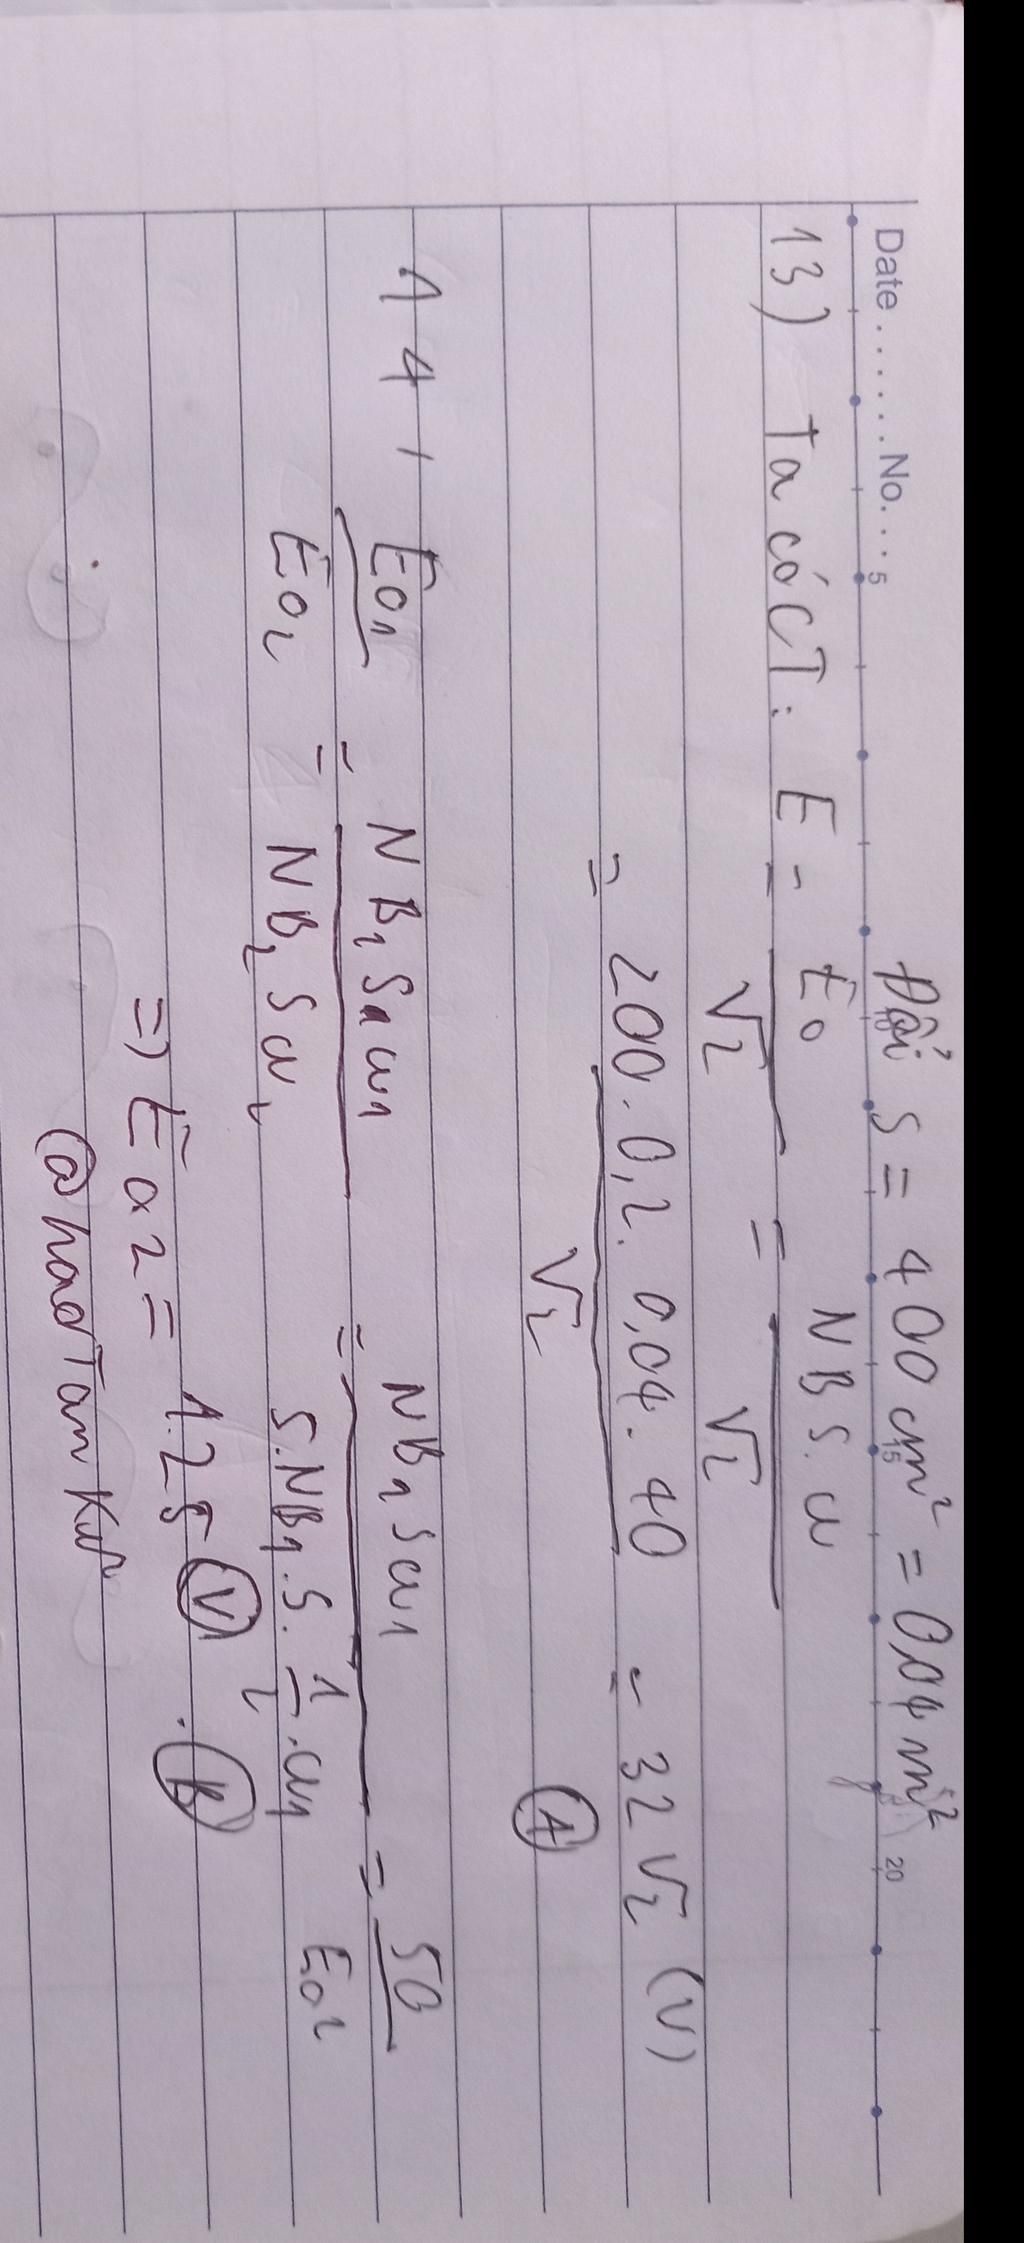 Date.......No...
5 10 15 20
Đổi S = 400 cm² = 0,04 m²
13) Ta có CT: E = E₀/√2 = NBS.ω/√2
= 200.0,2.0,04.40/√2 = 32√2 (V)
(A)
14, E₀₁/E₀₂ = NB₁Sω₁/NB₂Sω₂ = NB₁Sω₁/5.NB₁.S.1/2.ω₁ = 50/E₀₂
=) E₀₂ = 125 (V). (B)